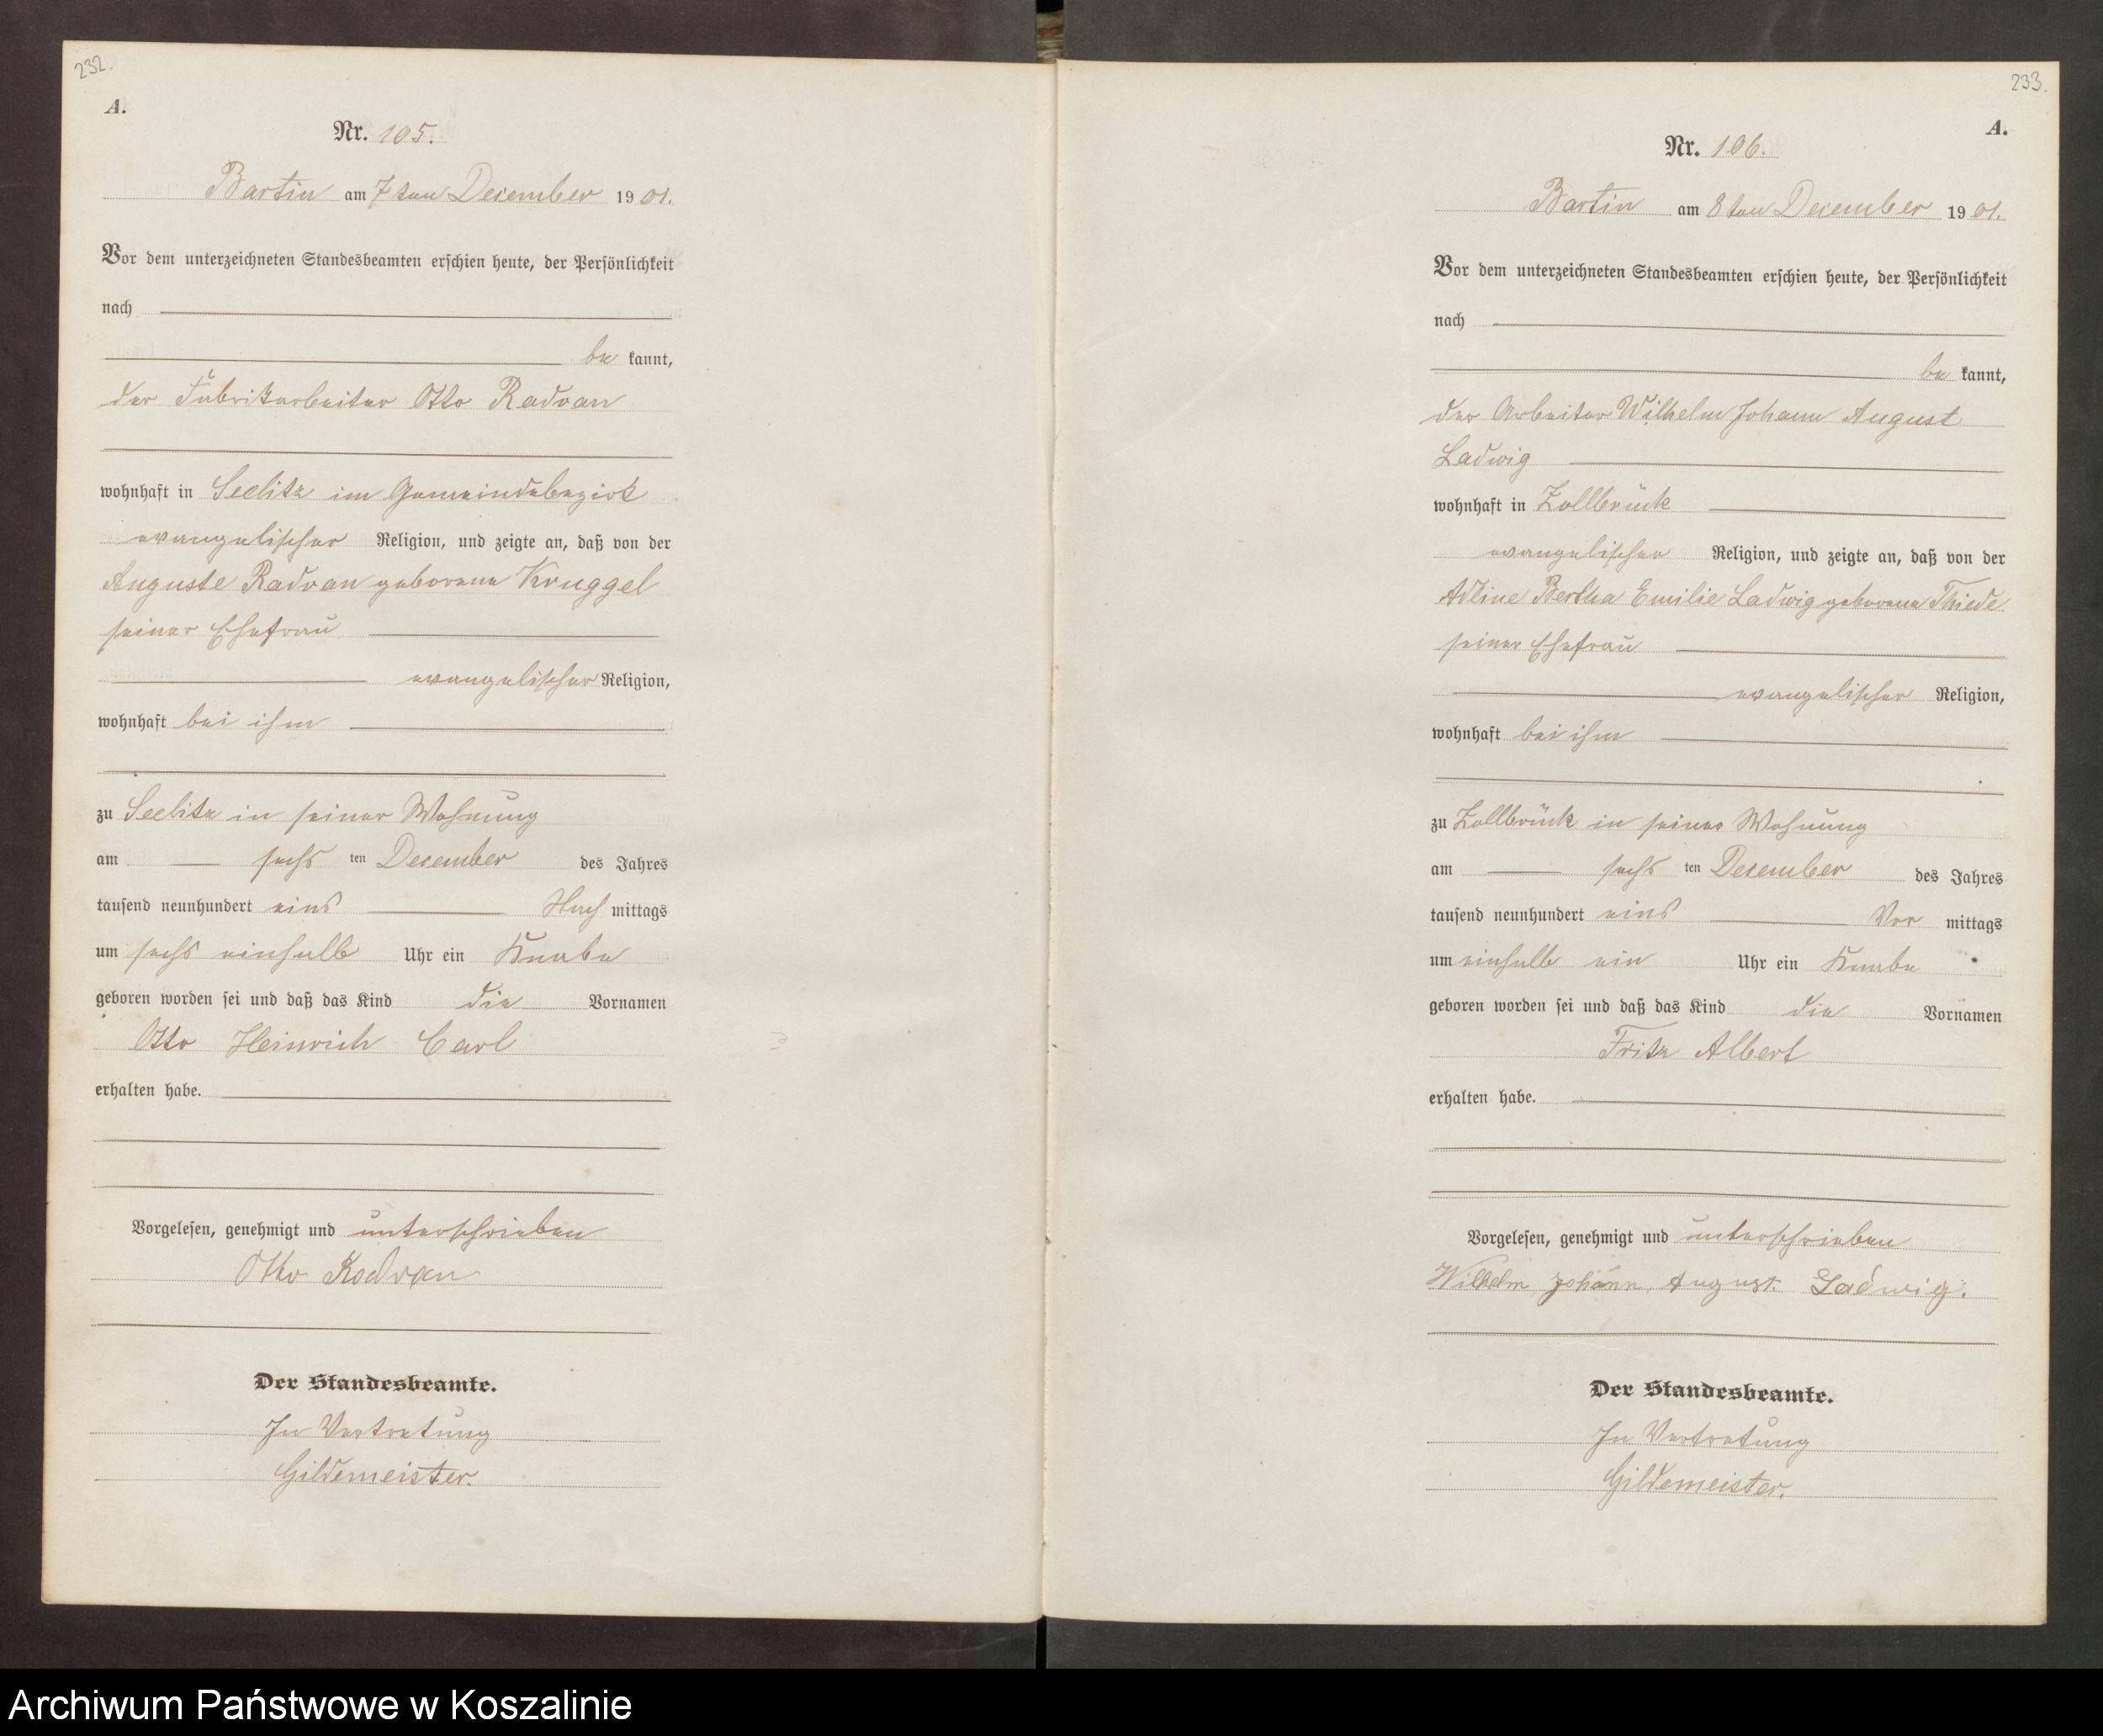 232.
A.
Nr. 105.
Bartin am 7ten December 1901.
Vor dem unterzeichneten Standesbeamten erschien heute, der Persönlichkeit
nach
be kannt,
der Fabrikarbeiter Otto Radvan
wohnhaft in Seelitz im Gemeindebezirk
evangelischer Religion, und zeigte an, daß von der
Auguste Radvan geborene Kruggel
seiner Ehefrau
evangelischer Religion,
wohnhaft bei ihm
zu Seelitz in seiner Wohnung
am sechs ten December des Jahres
tausend neunhundert eins Nach mittags
um sechs einhalb Uhr ein Knabe
geboren worden sei und daß das Kind die Vornamen
Otto Heinrich Carl
erhalten habe.
Vorgelesen, genehmigt und unterschrieben
Otto Radvan
Der Standesbeamte.
In Vertretung
Gildemeister.
233.
A.
Nr. 106.
Bartin am 8ten December 1901.
Vor dem unterzeichneten Standesbeamten erschien heute, der Persönlichkeit
nach
be kannt,
der Arbeiter Wilhelm Johann August
Ladwig
wohnhaft in Zollbrück
evangelischer Religion, und zeigte an, daß von der
Adline Bertha Emilie Ladwig geborene Thiede
seiner Ehefrau
evangelischer Religion,
wohnhaft bei ihm
zu Zollbrück in seiner Wohnung
am sechs ten December des Jahres
tausend neunhundert eins Vor mittags
um einhalb ein Uhr ein Knabe
geboren worden sei und daß das Kind die Vornamen
Fritz Albert
erhalten habe.
Vorgelesen, genehmigt und unterschrieben
Wilhelm Johann, August. Ladwig.
Der Standesbeamte.
In Vertretung
Gildemeister.
Archiwum Państwowe w Koszalinie